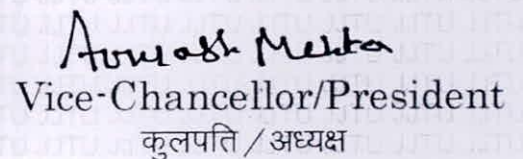 Avinash Mehta
Vice-Chancellor/President
कुलपति / अध्यक्ष